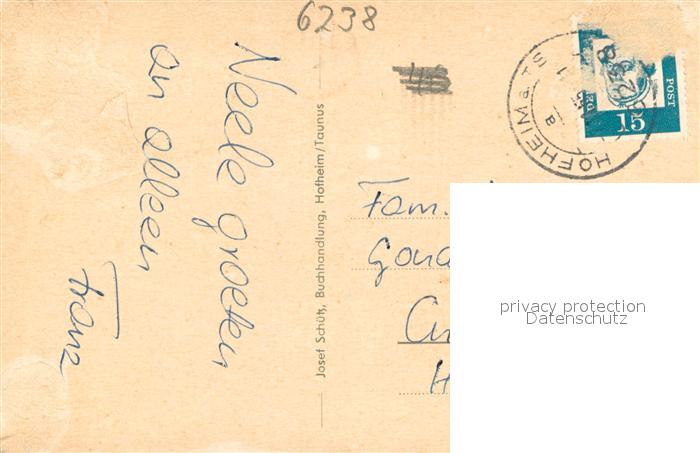 6238
Neele groeten
an alleen
Franz
Josef Schütz, Buchhandlung, Hofheim/Taunus
HOFHEIM a. TS
a
POST
15
Fam.
privacy protection
Datenschutz